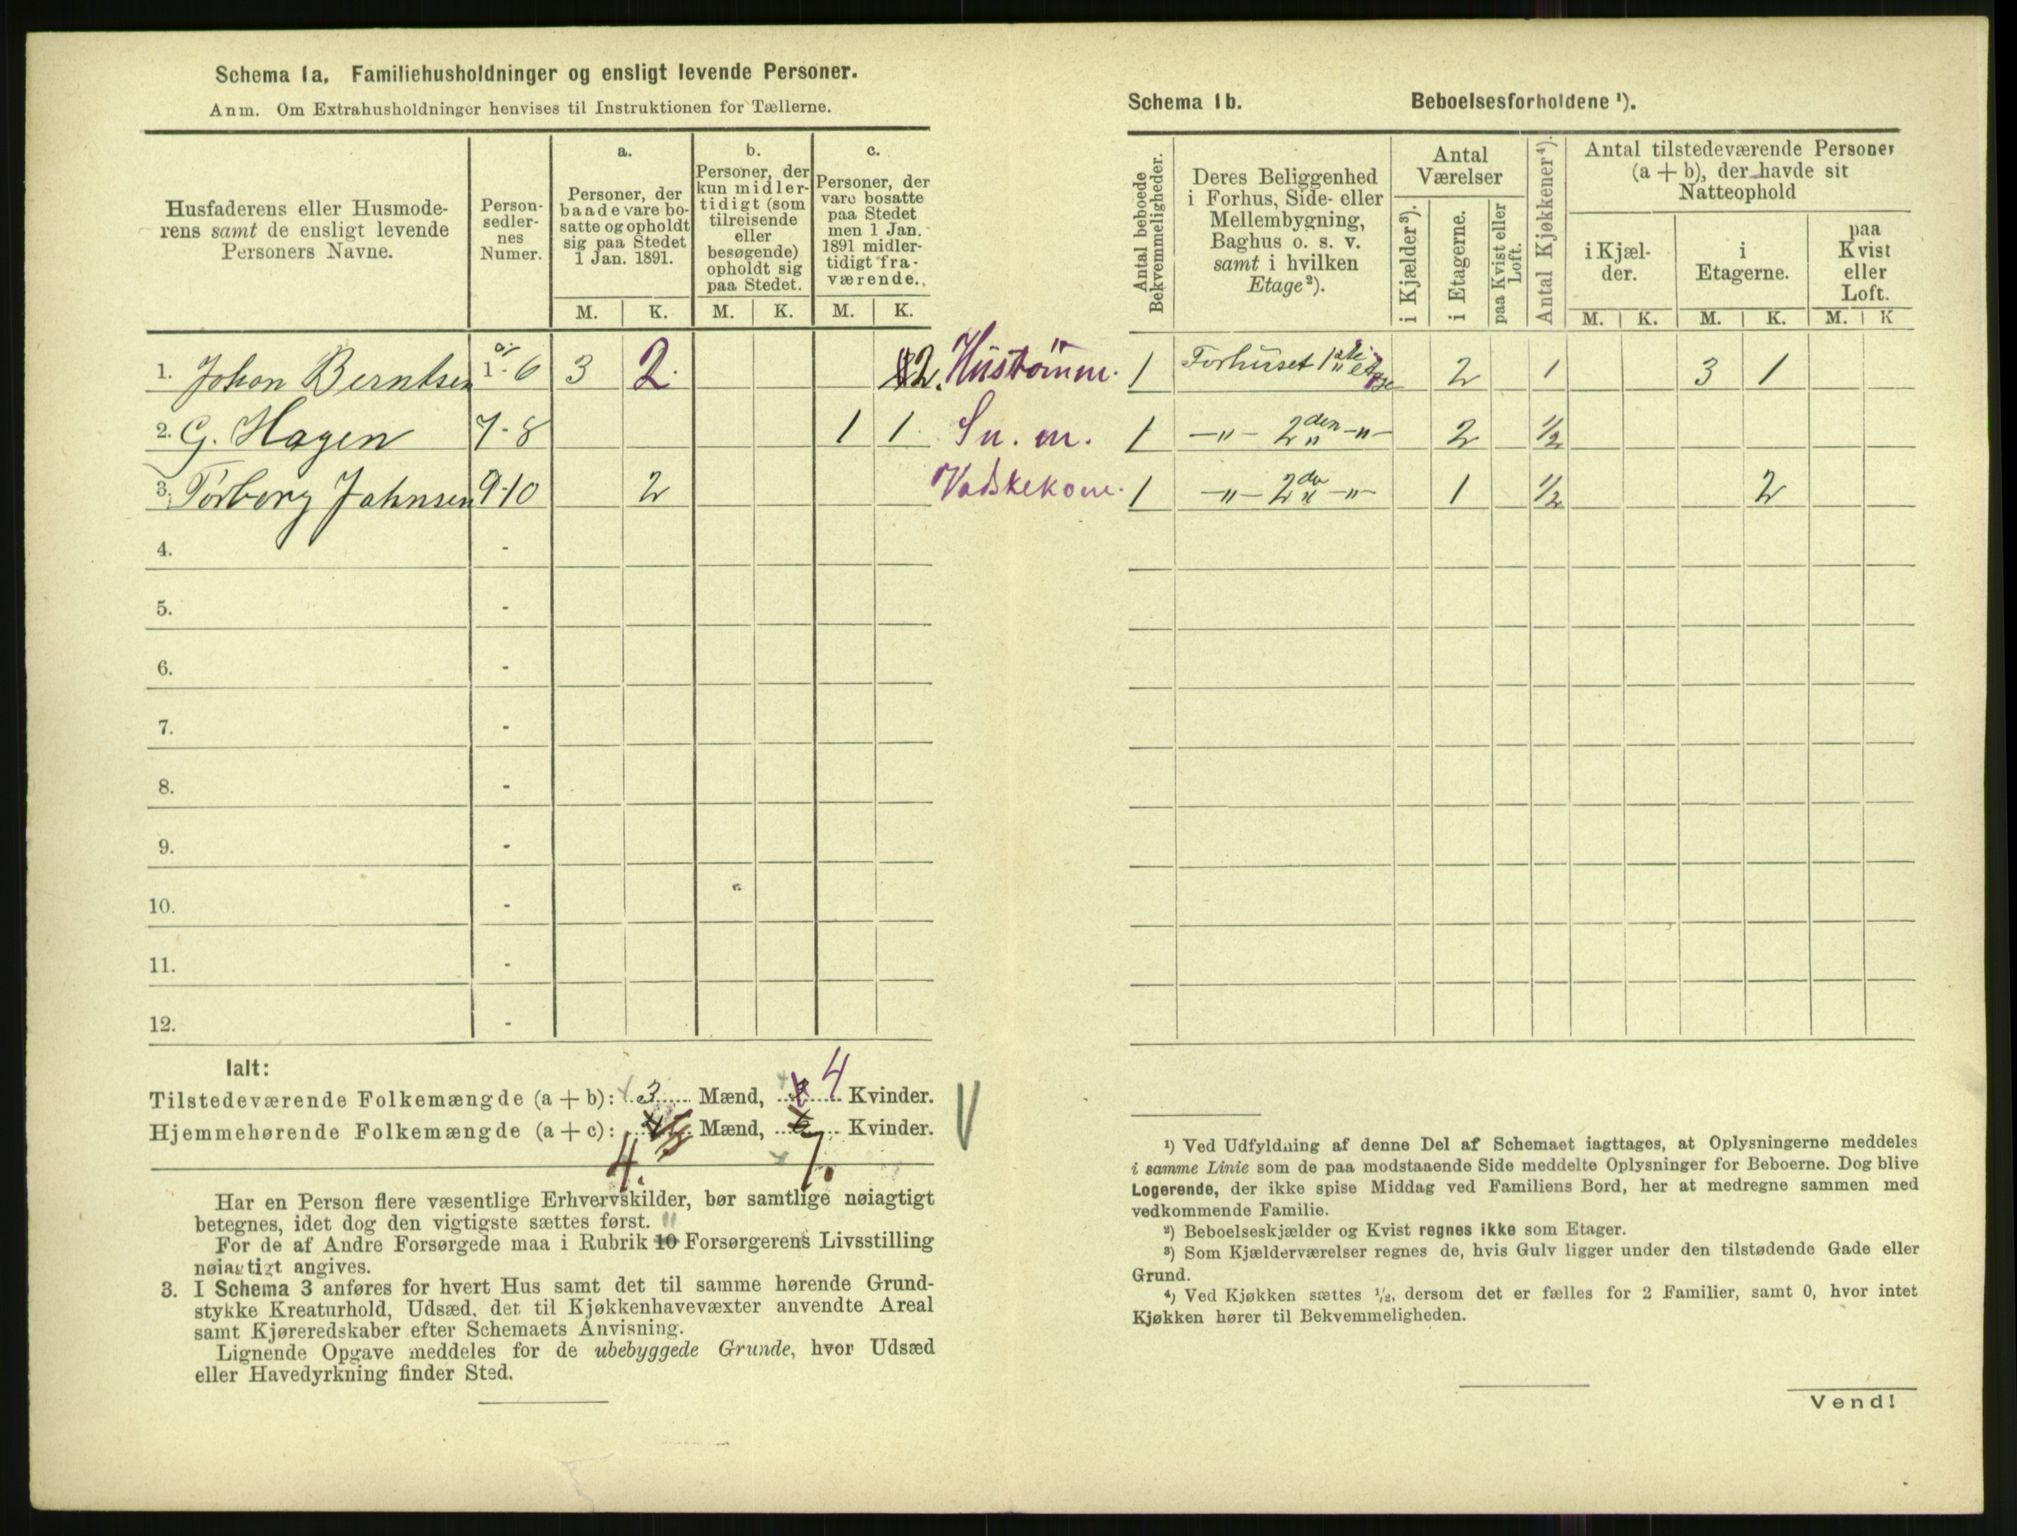 Schema 1a. Familiehusholdninger og ensligt levende Personer.
Anm. Om Extrahusholdninger henvises til Instruktionen for Tællerne.
Husfaderens eller Husmode-
rens samt de ensligt levende
Personers Navne.
Person-
sedler-
nes
Numer.
a.
Personer, der
baade vare bo-
satte og opholdt
sig paa Stedet
1 Jan. 1891.
b.
Personer, der
kun midler-
tidigt (som
tilreisende
eller
besøgende)
opholdt sig
paa Stedet.
c.
Personer, der
vare bosatte
paa Stedet
men 1 Jan.
1891 midler-
tidigt fra-
værende.
M. K. M. K. M. K.
1. Johan Berntsen 1-6 3 2. 2. Hustømm.
2. G. Hagen 7-8 1 1 Sn. m.
3. Torborg Jahnsen 9-10 2 Vadskekone.
4. -
5. -
6. -
7. -
8. -
9. -
10. -
11. -
12. -
Ialt:
Tilstedeværende Folkemængde (a + b): 3 Mænd, 4 Kvinder.
Hjemmehørende Folkemængde (a + c): Mænd, Kvinder.
4. 7.
Har en Person flere væsentlige Erhvervskilder, bør samtlige nøiagtigt
betegnes, idet dog den vigtigste sættes først.
For de af Andre Forsørgede maa i Rubrik 10 Forsørgerens Livsstilling
nøiagtigt angives.
3. I Schema 3 anføres for hvert Hus samt det til samme hørende Grund-
stykke Kreaturhold, Udsæd, det til Kjøkkenhavevæxter anvendte Areal
samt Kjøreredskaber efter Schemaets Anvisning.
Lignende Opgave meddeles for de ubebyggede Grunde, hvor Udsæd
eller Havedyrkning finder Sted.
Schema 1b. Beboelsesforholdene ¹).
Antal beboede
Bekvemmeligheder.
Deres Beliggenhed
i Forhus, Side- eller
Mellembygning,
Baghus o. s. v.
samt i hvilken
Etage²).
Antal
Værelser
i Kjælder³).
i Etagerne.
paa Kvist eller
Loft.
Antal Kjøkkener⁴).
Antal tilstedeværende Personer
(a + b), der havde sit
Natteophold
i Kjæl-
der.
i
Etagerne.
paa
Kvist
eller
Loft.
M. K. M. K. M. K
1 Forhuset 1ste Etage 2 1 3 1
1 -"- 2den -"- 2 1/2
1 -"- 2den -"- 1 1/2 2
¹) Ved Udfyldning af denne Del af Schemaet iagttages, at Oplysningerne meddeles
i samme Linie som de paa modstaaende Side meddelte Oplysninger for Beboerne. Dog blive
Logerende, der ikke spise Middag ved Familiens Bord, her at medregne sammen med
vedkommende Familie.
²) Beboelseskjælder og Kvist regnes ikke som Etager.
³) Som Kjælderværelser regnes de, hvis Gulv ligger under den tilstødende Gade eller
Grund.
⁴) Ved Kjøkken sættes ¹/₂, dersom det er fælles for 2 Familier, samt 0, hvor intet
Kjøkken hører til Bekvemmeligheden.
Vend!